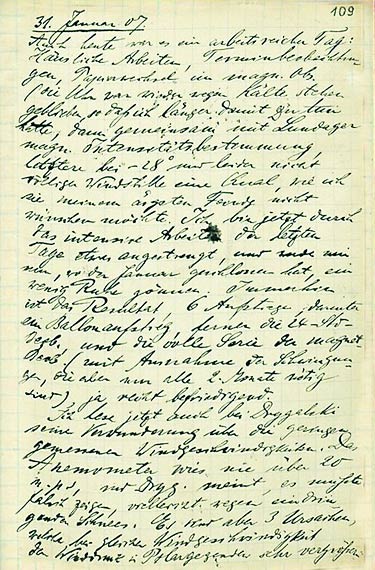 109
31. Januar 07
Auch heute war es ein arbeitsreicher Tag:
Häusliche Arbeiten, Terminbeobachtun-
gen, Papierwechsel im magn. Ob.
(die Uhr war wieder wegen Kälte stehen
geblieben, so daß ich länger damit zu tun
hatte, dann gemeinsam mit Lundager
magn. Intensitätsbestimmung
letztere bei -28° und leider nicht
völliger Windstille eine Qual, wie ich
sie meinem ärgsten Feinde nicht
wünschen möchte. Ich bin jetzt durch
das intensive Arbeiten der letzten
Tage etwas angestrengt, und will mir
nun, wo der Januar geschlossen hat, ein
wenig Ruhe gönnen. Immerhin
ist das Resultat, 6 Aufstiege, darunter
ein Ballonaufstieg, ferner die 24-
und die volle Serie der magnet.
(mit Ausnahme der Schwingun-
gen, die aber nur alle 2 Monate nötig
sind) ja recht befriedigend.
Ich lese jetzt auch bei Drygalski
seine Verwunderung über die geringen
gemessenen Windgeschwindigkeiten. Das
Anemometer wies nie über 20
m.p.s, und Dryg. meint, es müßte
falsch zeigen, vielleicht wegen eindrin-
genden Schnees. Es sind aber 3 Ursachen,
welche bei gleicher Windgeschwindigkeit
den Winddruck in Polargegenden sehr vergrößern